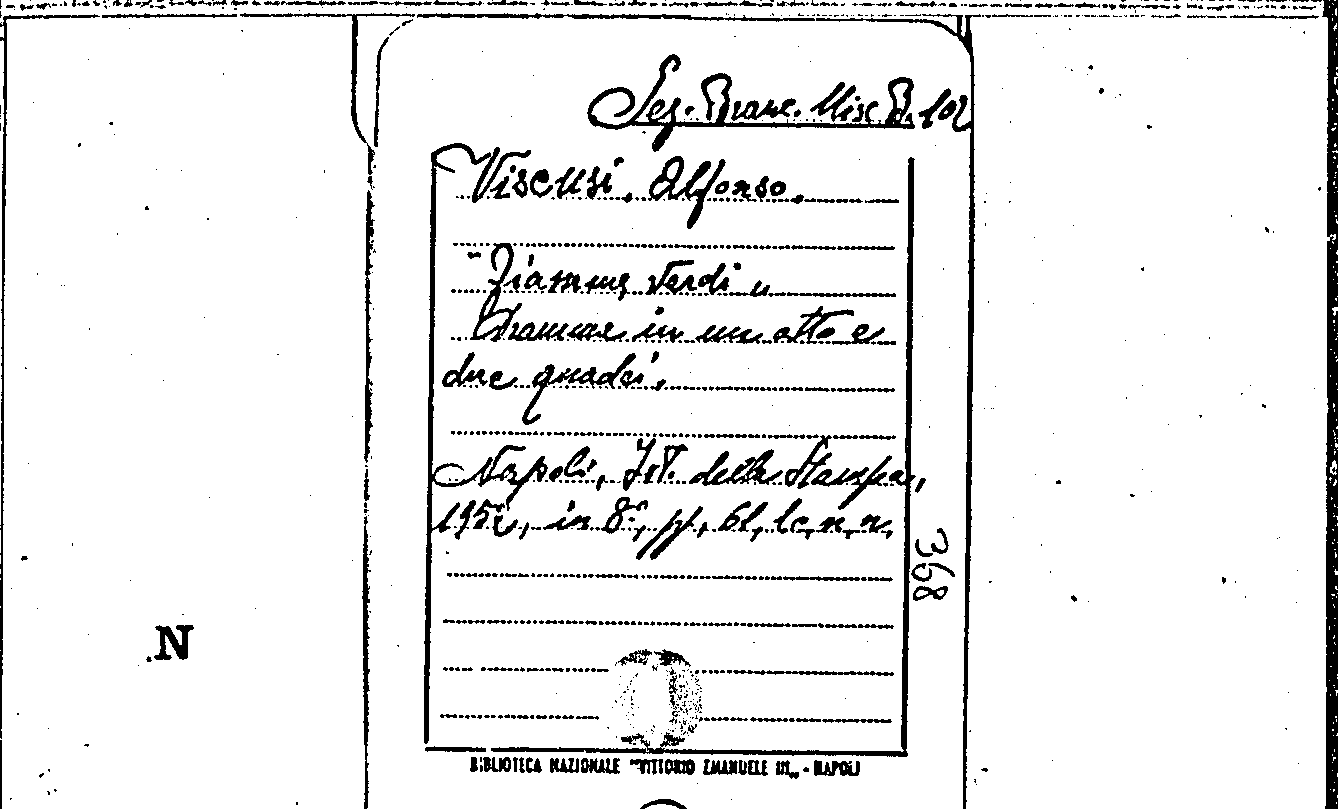 Sez. Branc. Misc. B. 102
Viscusi, Alfonso.
"Fiamme verdi"
Dramma in un atto e
due quadri.
Napoli, Ist. della Stampa,
in 8°, pp. 61, 1 c. n. n.
368
N
BIBLIOTECA NAZIONALE "VITTORIO EMANUELE III" - NAPOLI